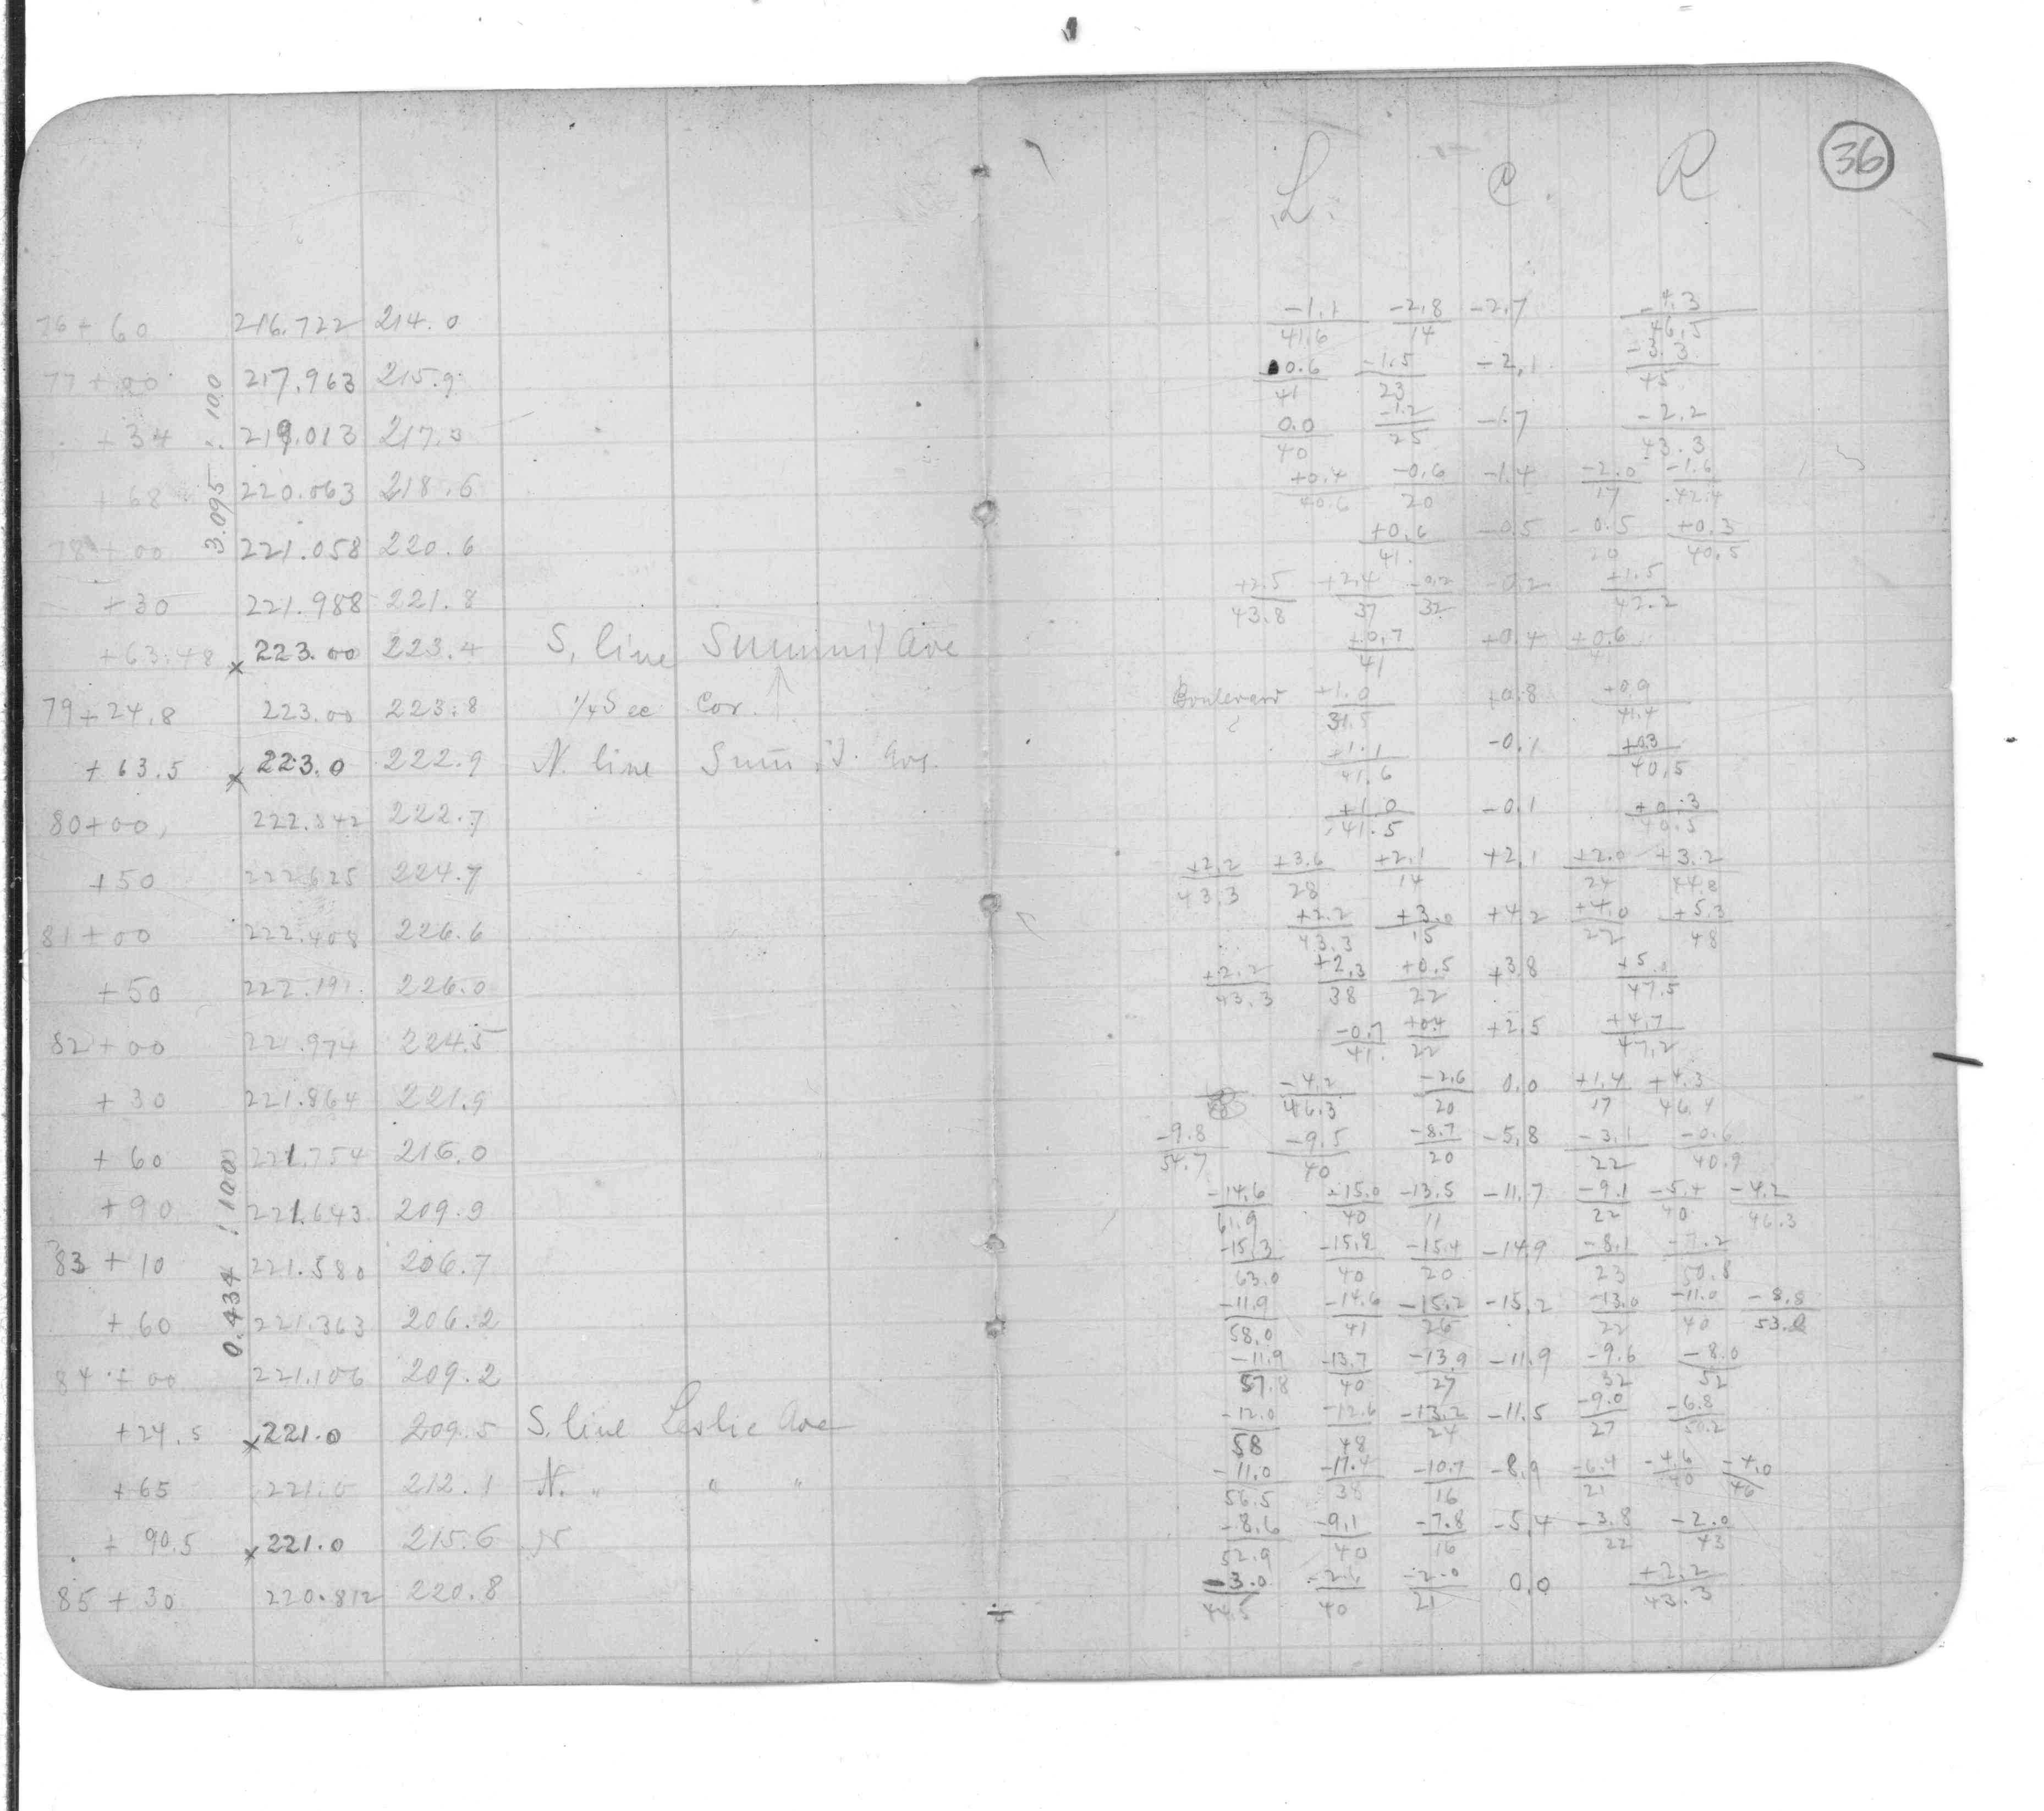 36
L. C. R
76+60 216.722 214.0 -1.1/41.6 -2.8/14 -2.7 -4.3/46.5
77+00 217.963 215.9 0.6/41 -1.5/23 -2.1 -3.3/45
+34 219.013 217.3 0.0/40 -1.2/25 -1.7 -2.2/43.3
+68 220.063 218.6 +0.4/40.6 -0.6/20 -1.4 -2.0/17 -1.6/42.4
78+00 221.058 220.6 +0.6/41. -0.5 -0.5/20 +0.3/40.5
3.095 : 100
+30 221.988 221.8 +2.5/43.8 +2.4/37 -0.2/32 -0.2 +1.5/42.2
+63.48 x 223.00 223.4 S. line Summit Ave +0.7/41 +0.4 +0.6/41
79+24.8 223.00 223.8 1/4 Sec Cor. ↑ Boulevard +1.0/31.5 +0.8 +0.9/41.4
+63.5 x 223.0 222.9 N. line Summit. Ave. +1.1/41.6 -0.1 +0.3/40.5
80+00, 222.842 222.7 +1.0/41.5 -0.1 +0.3/40.5
+50 222.625 224.7 +2.2/43.3 +3.6/28 +2.1/14 +2.1 +2.0/24 +3.2/44.8
81+00 222.408 226.6 +2.2/43.3 +3.0/15 +4.2 +4.0/22 +5.3/48
+50 222.191 226.0 +2.2/43.3 +2.3/38 +0.5/22 +3.8 +5.0/47.5
82+00 221.974 224.5 -0.7/41. +0.4/22 +2.5 +4.7/47.2
+30 221.864 221.9 -4.2/46.3 -2.6/20 0.0 +1.4/17 +4.3/46.4
+60 221.754 216.0 -9.8/54.7 -9.5/40 -8.7/20 -5.8 -3.1/22 -0.6/40.9
+90 221.643 209.9 -14.6/61.9 -15.0/40 -13.5/11 -11.7 -9.1/22 -5.4/40 -4.2/46.3
83+10 221.580 206.7 -15.3/63.0 -15.8/40 -15.4/20 -14.9 -8.1/23 -7.2/50.8
0.434 : 100
+60 221.363 206.2 -11.9/58.0 -14.6/41 -15.2/26 -15.2 -13.0/22 -11.0/40 -8.8/53.2
84+00 221.106 209.2 -11.9/57.8 -13.7/40 -13.9/27 -11.9 -9.6/32 -8.0/52
+24.5 x 221.0 209.5 S. line Leslie Ave -12.0/58 -12.6/48 -13.2/24 -11.5 -9.0/27 -6.8/50.2
+65 221.0 212.1 N. " " " -11.0/56.5 -11.4/38 -10.7/16 -8.9 -6.4/21 -4.6/40 -4.0/46
+90.5 x 221.0 215.6 N -8.6/52.9 -9.1/40 -7.8/16 -5.4 -3.8/22 -2.0/43
85+30 220.812 220.8 -3.0/44.5 -2.6/40 -2.0/21 0.0 +2.2/43.3